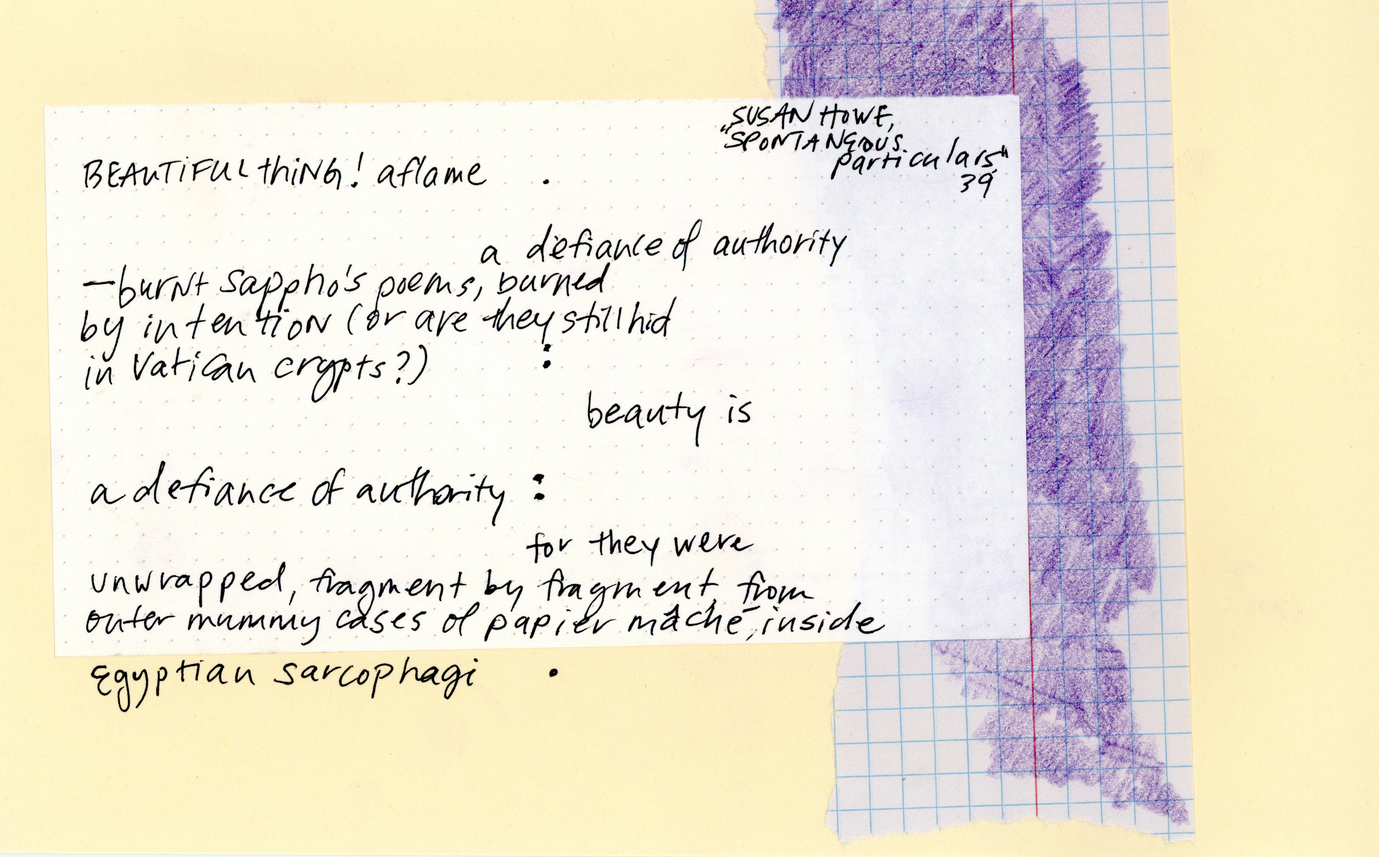 SUSAN HOWE,
"SPONTANEOUS
particulars"
39
BEAUTIFUL thiNG! aflame .
a defiance of authority
—burnt Sappho's poems, burned
by intention (or are they still hid
in Vatican crypts?) :
beauty is
a defiance of authority :
for they were
unwrapped, fragment by fragment, from
outer mummy cases of papier mâché, inside
Egyptian sarcophagi .